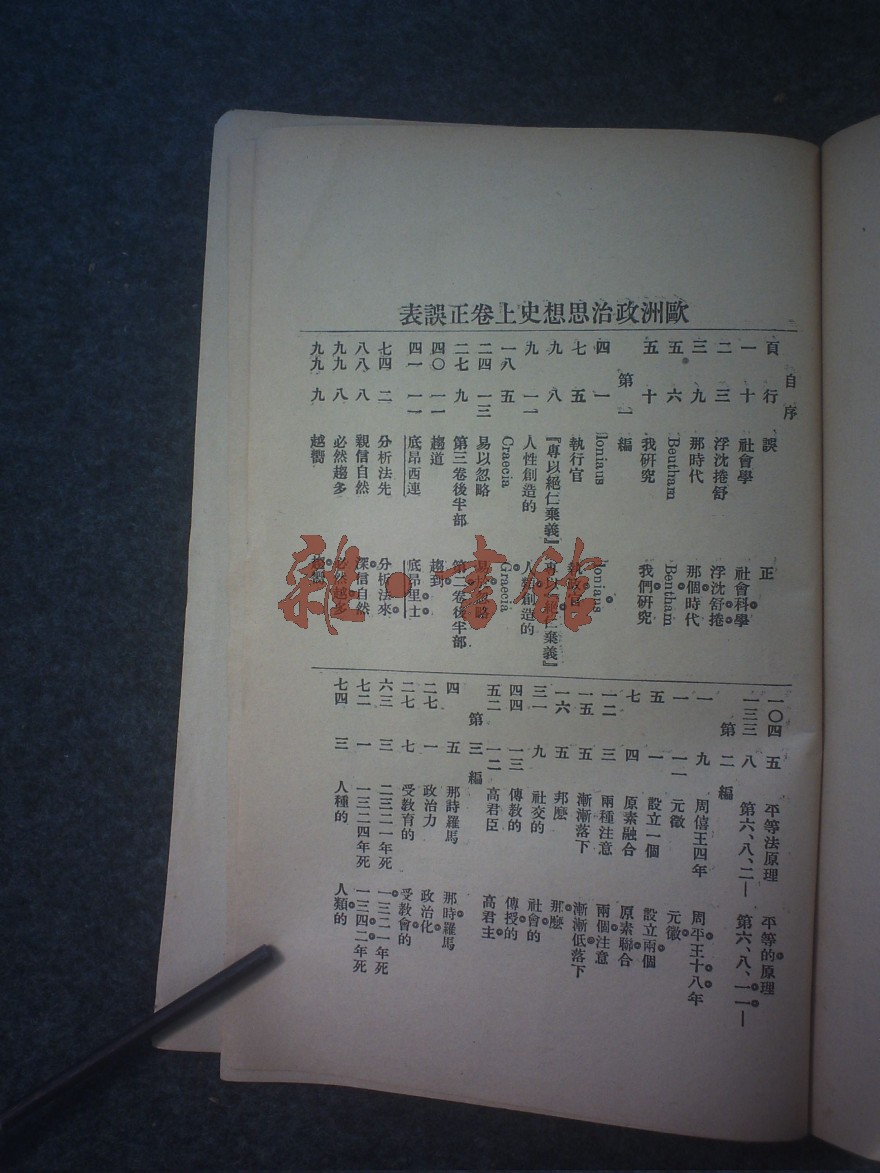 歐洲政治思想史上卷正誤表
自序
頁 行 誤 正
一 十 社會學 社會科學
二 三 浮沈捲舒 浮沈舒捲
三 九 那時代 那個時代
五 六 Beuthram Bentham
五 十 我研究 我們研究
第一編
四 一 Ionians
七 五 執行官 執政官
九 八 『專以絕仁棄義』 專以『絕仁棄義』
九 一一 人性創造的 人類創造的
一八 五 Craecia Graecia
二四 一三 易以忽略 忽略
二七 九 第三卷後半部 第二卷後半部
四〇 一一 趨道 趨到
四一 一一 底昂西連 底昂里士
七四 二 分析法先 分析法來
八八 八 親信自然 深信自然
九九 八 必然趨多 必然越多
九九 九 越嚮 趨嚮
一〇四 五 平等法原理 平等的原理
一三三 八 第六、八、二一 第六、八、一一一
第二編
一 九 周僖王四年 周平王十八年
一 一一 元徵 元徽
五 一 設立一個 設立兩個
七 四 原素融合 原素聯合
一二 三 兩種注意 兩個注意
一五 五 漸漸落下 漸漸低落下
一六 五 邦麽 那麽
三一 九 社交的 社會的
四四 一三 傳教的 傳授的
五二 一二 高君臣 高君主
第三編
四 五 那詩羅馬 那時羅馬
二七 一 政治力 政治化
二七 七 受教育的 受教會的
六三 三 二三二一年死 一三二一年死
七二 一 一三二四年死 一三四二年死
七四 三 人種的 人類的
雜·書館